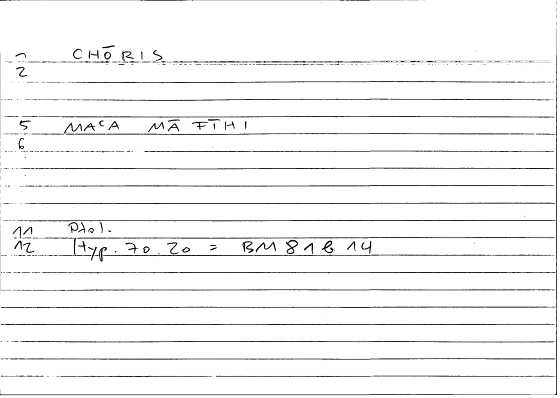 1 CHŌRIS
2
5 MACA MĀ FĪHI
6
11 Ptol.
12 Hyp. 70.20 = BM 81 B 14